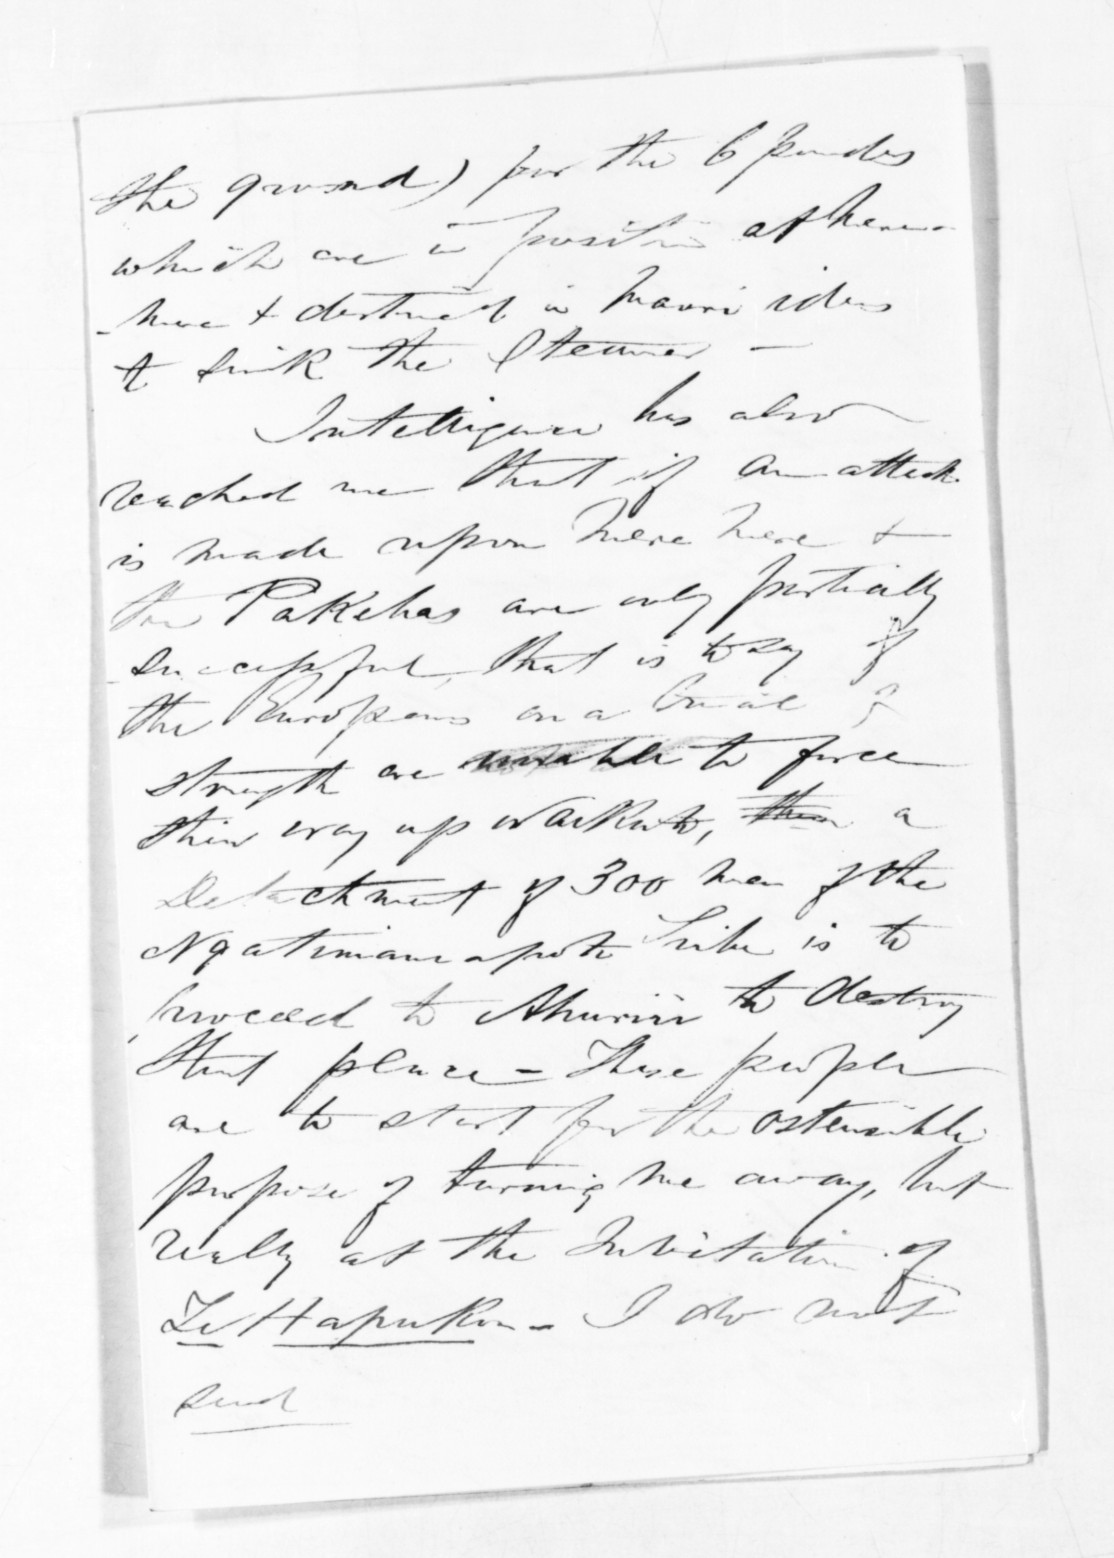 the ground) for the 6 pounders
which are in position at Mere-
-mere & destined in Maori ideas
to sink the Steamer -
Intelligence has also
reached me that if an attack
is made upon Mere Mere &
the Pakehas are only partially
successful, that is to say if
the Europeans on a trial of
strength are unable to force
their way up Waikato, then a
Detachment of 300 men of the
Ngatimaniapoto Tribe is to
proceed to Ahuriri to destroy
that place - These people
are to start for the ostensible
purpose of turning me away, but
really at the Invitation of
Te Hapuku - I do not
send